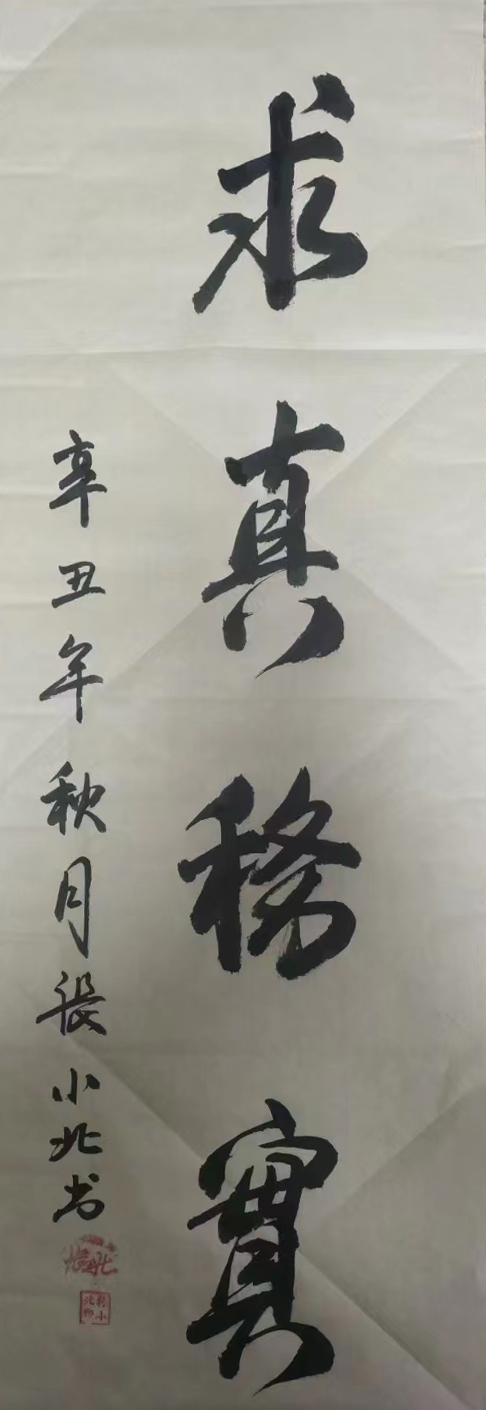 求真務實
辛丑年秋月張小北书